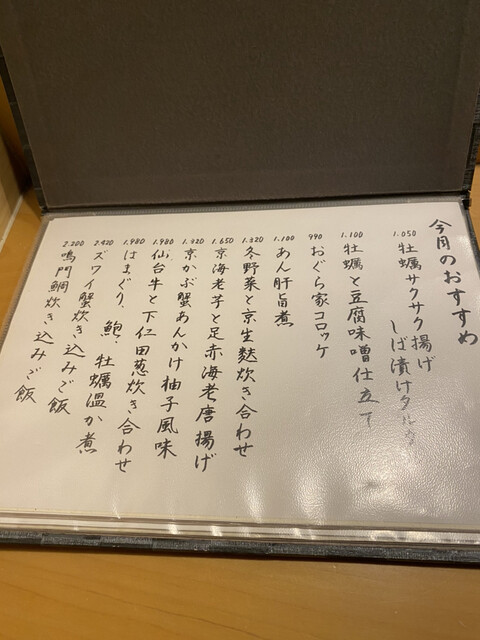 今月のおすすめ
1.050
牡蠣サクサク揚げ
しば漬けタルタル
1.100
牡蠣と豆腐味噌仕立て
990
おぐら家コロッケ
1.100
あん肝旨煮
1.320
冬野菜と京生麩炊き合わせ
1.650
京海老芋と足赤海老唐揚げ
1.320
京かぶ蟹あんかけ柚子風味
1.980
仙台牛と下仁田葱炊き合わせ
1.980
はまぐり、鮑、牡蠣温か煮
2.420
ズワイ蟹炊き込みご飯
2.200
鳴門鯛炊き込みご飯